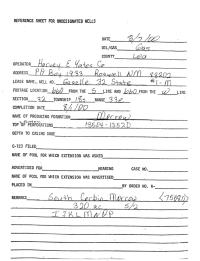 REFERENCE SHEET FOR UNDESIGNATED WELLS
DATE 8/7/00
OIL/GAS Gas
COUNTY Lea
OPERATOR Harvey E Yates Co
ADDRESS P.O. Box 1933 Roswell NM 88202
LEASE NAME, WELL NO. Gazelle 32 State #1-M
FOOTAGE LOCATION 660 FROM THE S LINE AND 660 FROM THE W LINE
SECTION 32 TOWNSHIP 18s RANGE 33e
COMPLETION DATE 8/1/00
NAME OF PRODUCING FORMATION Morrow
TOP OF PERFORATIONS
DEPTH TO CASING SHOE
C-123 FILED
NAME OF POOL FOR WHICH EXTENSION WAS ASKED
ADVERTISED FOR HEARING CASE NO.
NAME OF POOL FOR WHICH EXTENSION WAS ADVERTISED
PLACED IN BY ORDER NO. R-
REMARKS South Corbin Morrow
320 ac S/2
I J K L M N O P